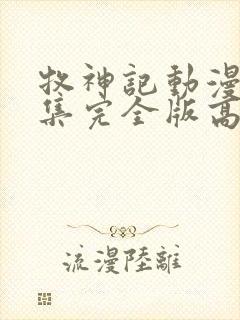 牧神記動漫
集完全版高
流漫陸離